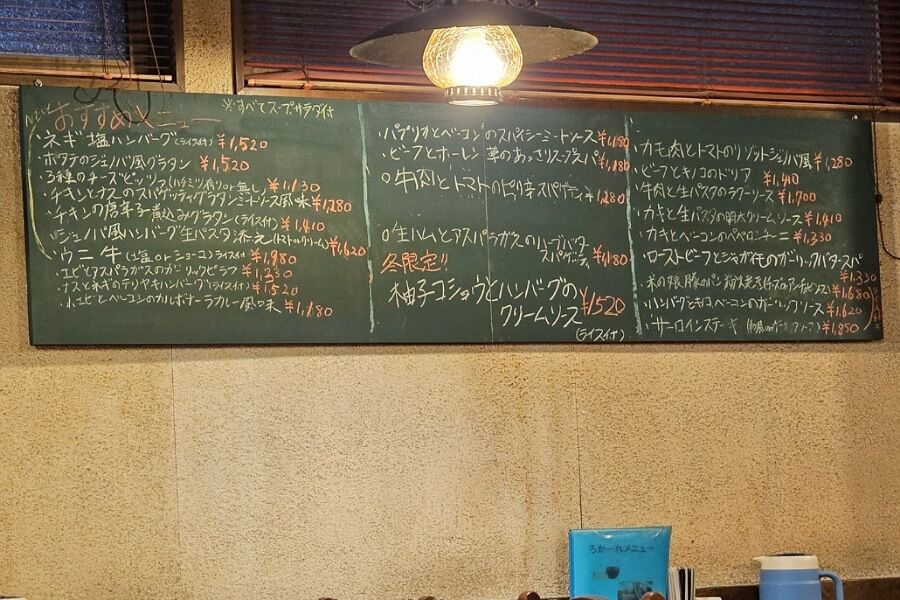 NEW おすすめメニュー
※すべてスープサラダ付
・ネギ塩ハンバーグ(ライス付) ¥1,520
・ホタテのジェノバ風グラタン ¥1,520
・3種のチーズピッツァ(ハチミツ有りor無し) ¥1,130
・チキンとナスのスパゲッティグラタンミートソース風味 ¥1,280
・チキンの唐辛子煮込みグラタン(ライス付) ¥1,410
・ジェノバ風ハンバーグ生パスタ添え(トマトorクリーム) ¥1,620
・ウニ牛(塩orショーユ)ライス付 ¥1,980
・エビとアスパラガスのガーリックピラフ ¥1,330
・ナスとネギのテリヤキハンバーグ(ライス付) ¥1,520
・小エビとベーコンのカルボナーラカレー風味 ¥1,180
・パプリカとベーコンのスパイシーミートソース ¥1,180
・ビーフとホーレン草のあっさりスープスパ ¥1,180
○牛肉とトマトのピリ辛スパゲッティ 1,280
○生ハムとアスパラガスのハーブバター
スパゲッティ ¥1,180
冬限定!!
柚子コショウとハンバーグの
クリームソース ¥1520
(ライス付)
・カモ肉とトマトのリゾットジェノバ風 ¥1,280
・ビーフとキノコのドリア ¥1,410
・牛肉と生パスタのラグーソース ¥1,700
・カキと生パスタの明太クリームソース ¥1,410
・カキとベーコンのペペロンチーニ ¥1,330
・ローストビーフとジャガイモのガーリックバタースパ
¥1,330
¥1,680
・ハンバーグとキノコベーコンのガーリックソース ¥1,620
・サーロインステーキ ¥1,850
ろかーれメニュー